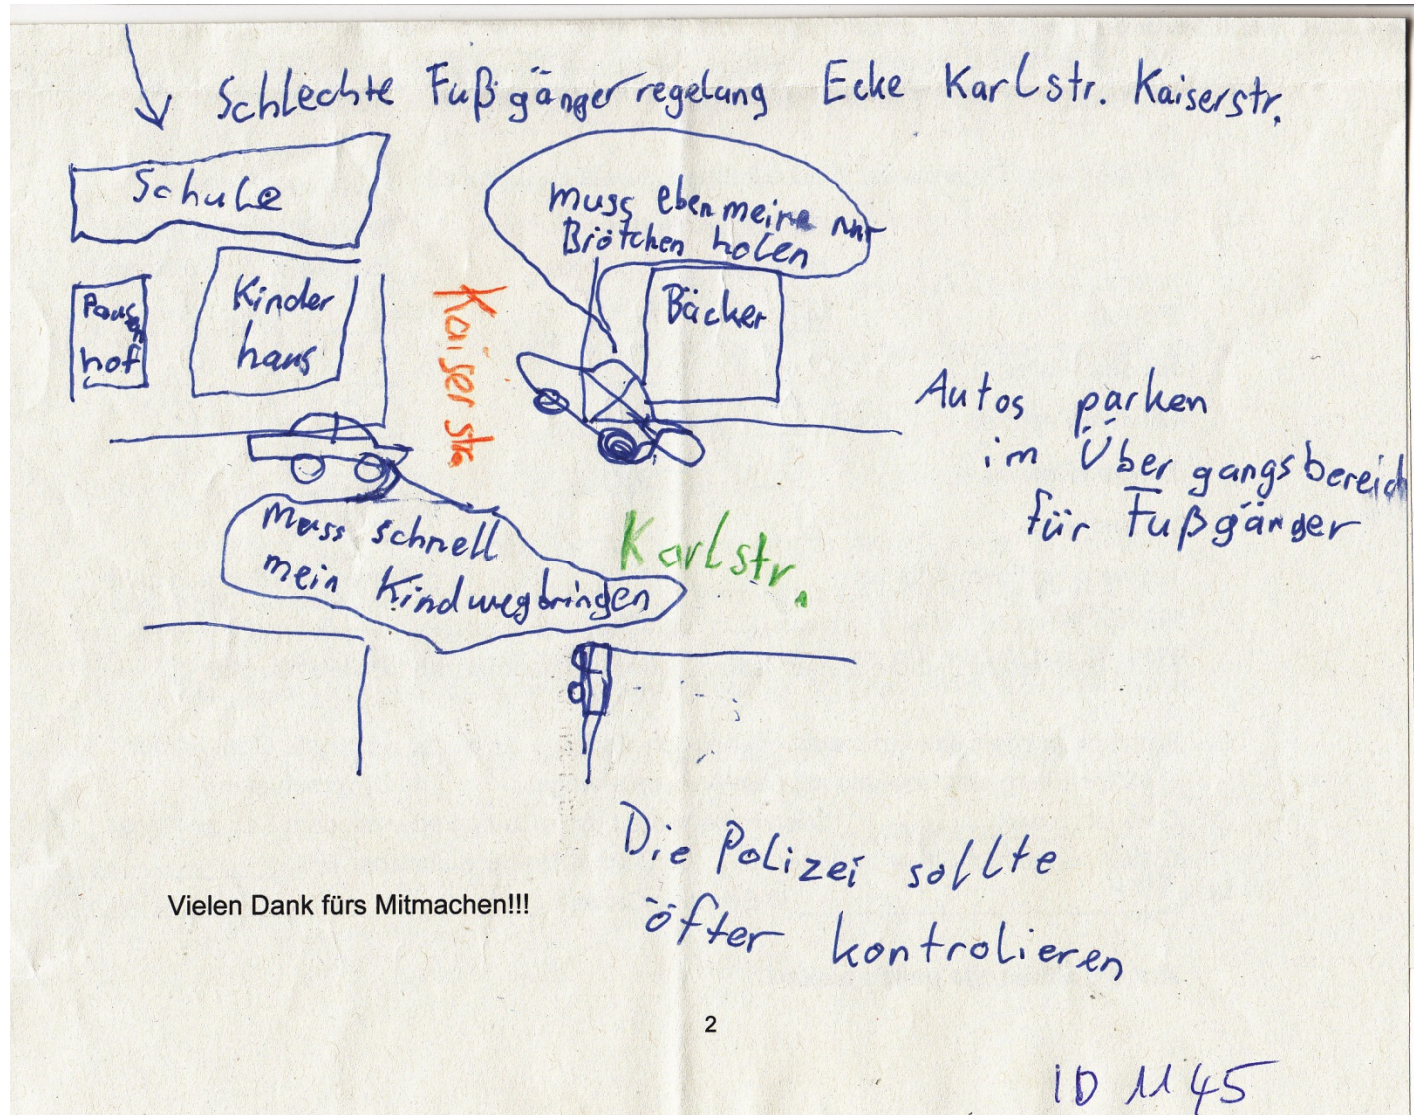 Schlechte Fußgängerregelung Ecke Karlstr. Kaiserstr.
Schule
muss eben meine nur
Brötchen holen
Pausen
hof
Kinder
haus
Kaiserstr.
Bäcker
Autos parken
im Übergangsbereich
für Fußgänger
Muss schnell
mein Kind wegbringen
Karlstr.
Die Polizei sollte
öfter kontrolieren
Vielen Dank fürs Mitmachen!!!
2
ID 1145